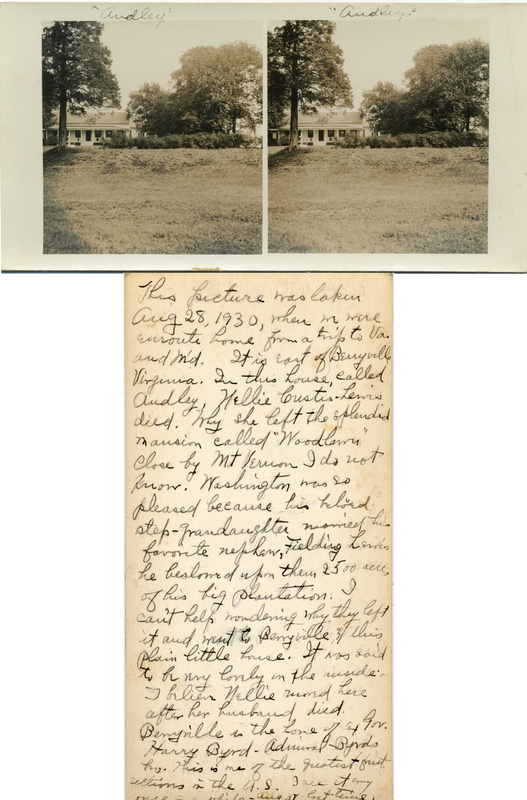 "Audley"
"Audley."
This picture was taken
Aug 28, 1930, when we were
enroute home from a trip to Va.
and Md. It is east of Berryville
Virginia. In this house, called
Audley, Nellie Custis-Lewis
died. Why she left the splendid
mansion called "Woodlawn"
close by Mt Vernon I do not
know. Washington was so
pleased because his beloved
step-grandaughter married his
favorite nephew, Fielding Lewis
he bestowed upon them 2500 acres
of his big plantation. I
can't help wondering why they left
it and went to Berryville & this
plain little house. It was said
to be very lovely on the inside.
I believe Nellie moved here
after her husband died.
Berryville is the home of ex Gov.
Harry Byrd - Admiral Byrds
bro. This is one of the greatest fruit
sections in the U.S. I see it
once in a while - Aug last time